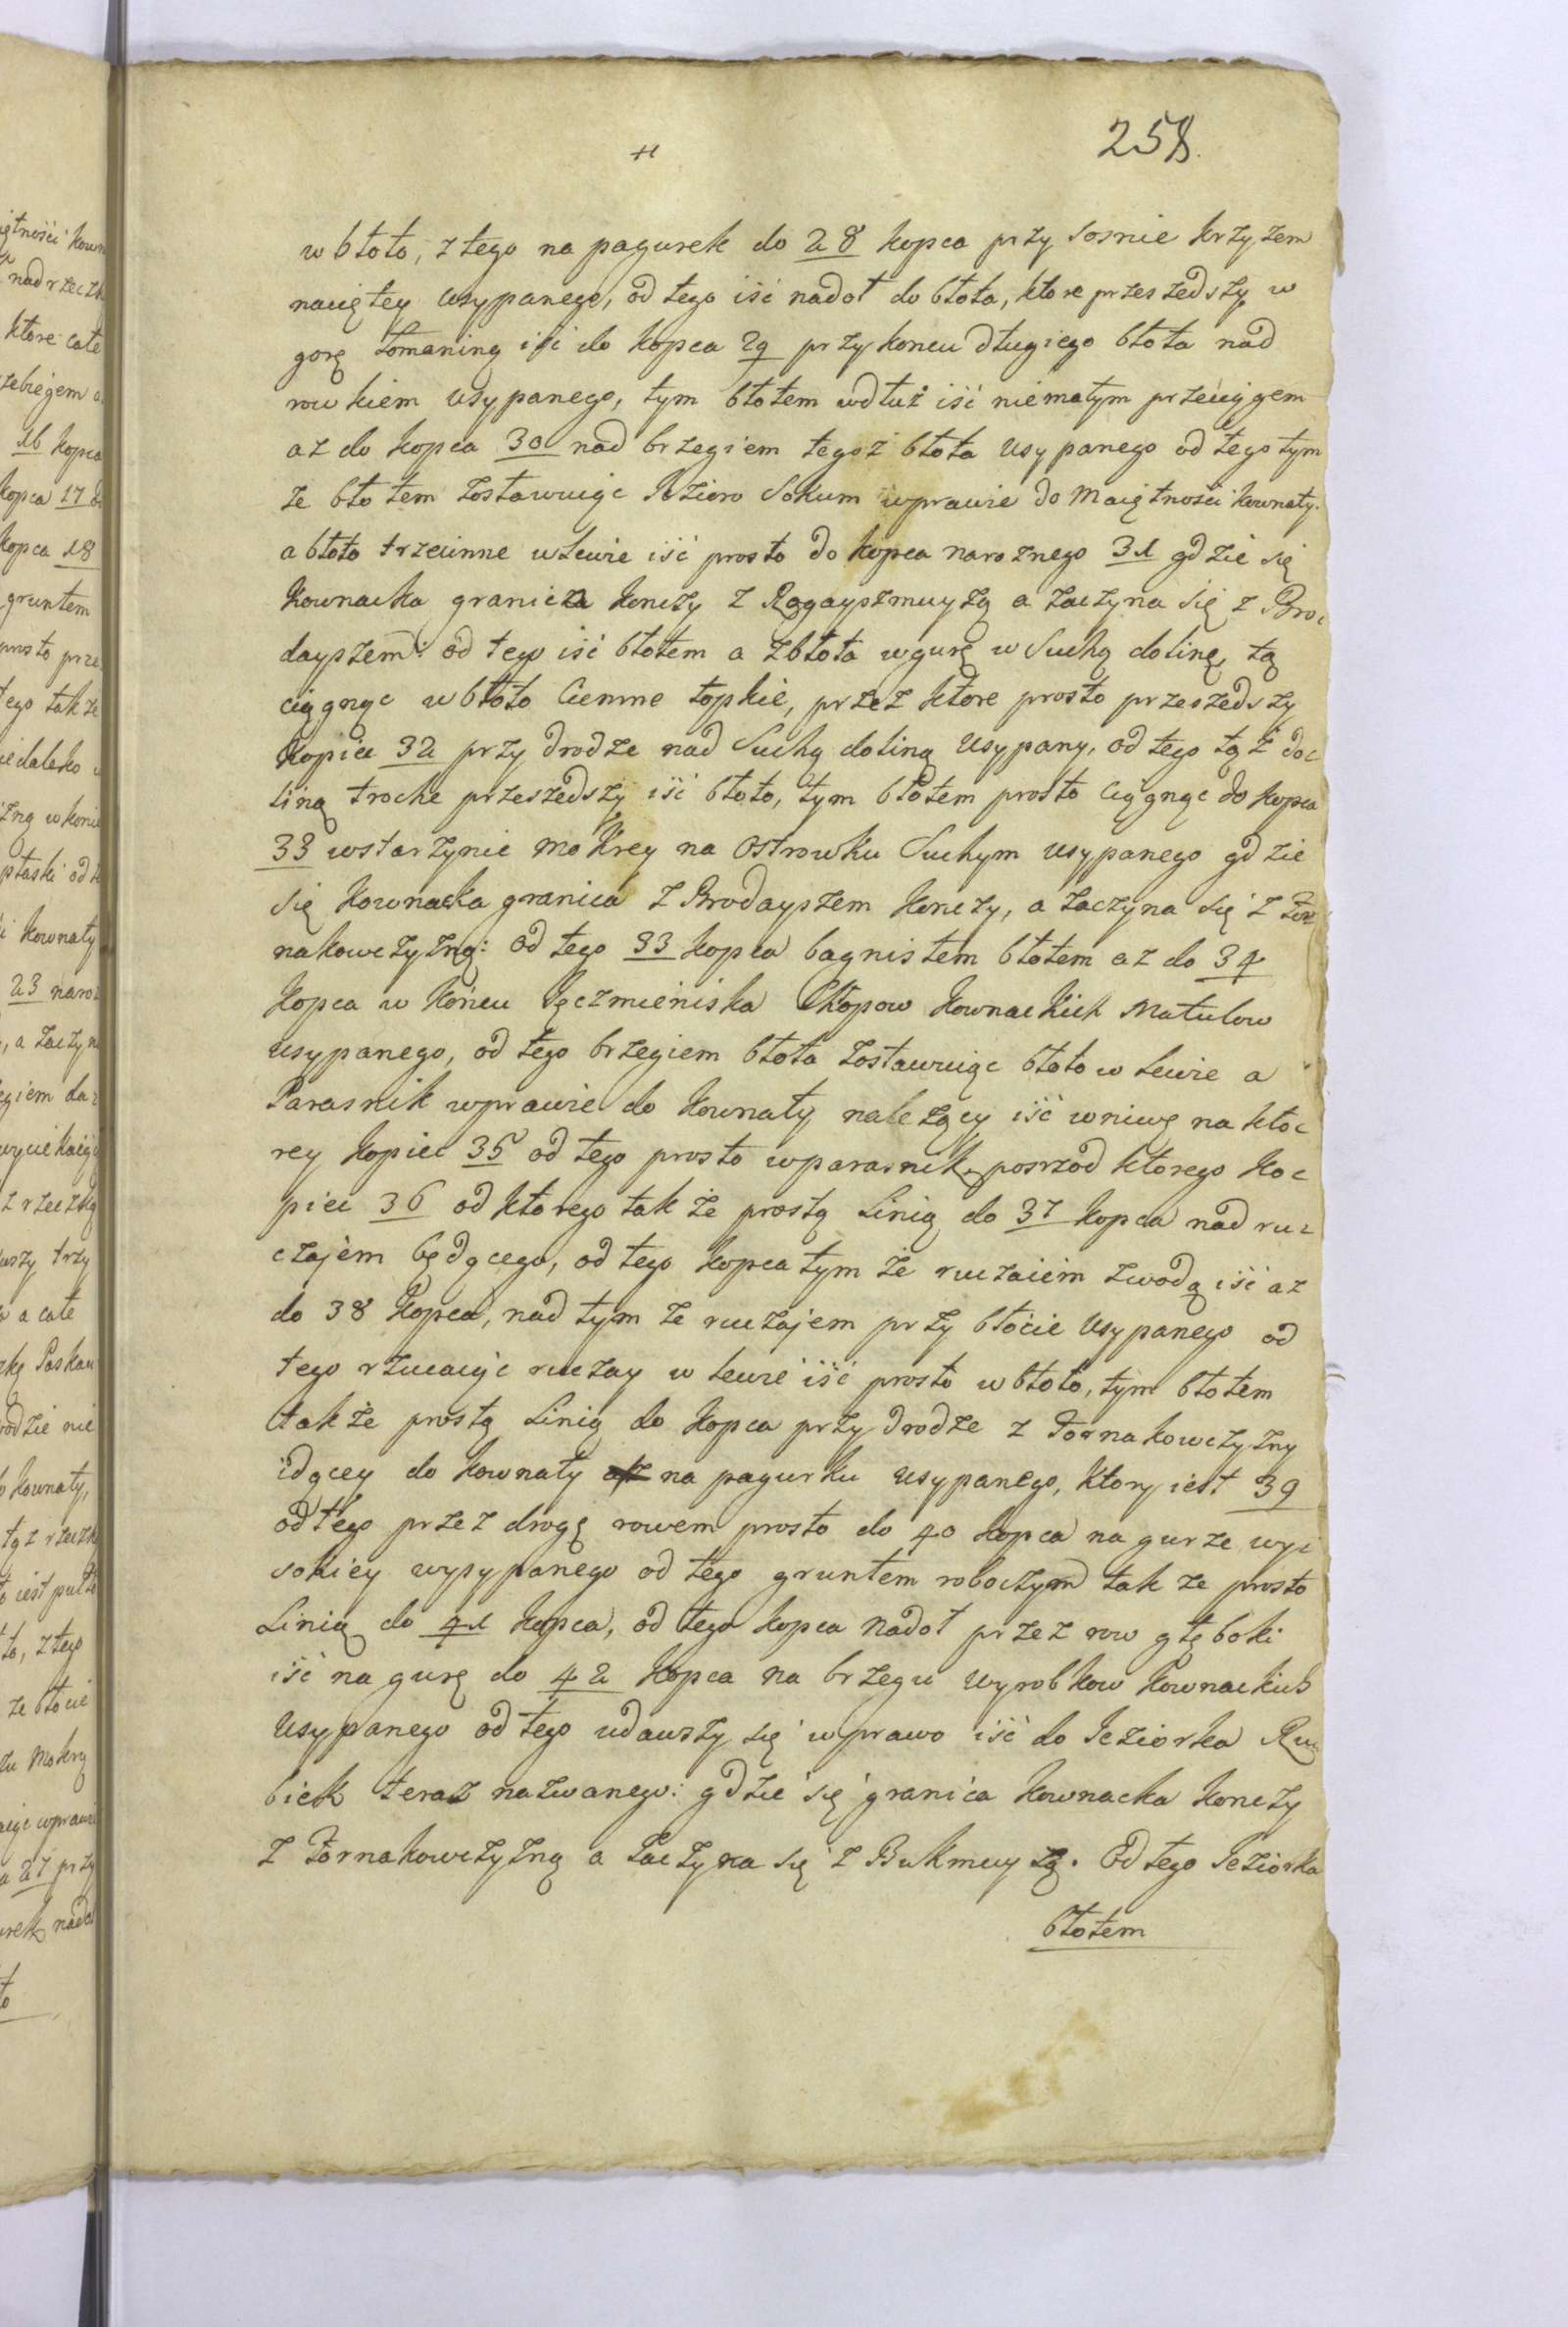 258.
w błoto, z tego na pagurek do 28 kopca przy sosnie krzyżem
naciętey usypanego, od tego iść nadoł do błota, ktore przeszedszy w
gorę Łomaniną iść do kopca 29 przy koncu długiego błota nad
rowkiem usypanego, tym błotem wdłuż iść niemałym przeciągem
az do kopca 30 nad brzegiem tegoż błota usypanego od tego tym
ze błotem zostawuiąc Jezioro Sokum wprawie do Maiętności Kownaty.
a błoto trzcinne wlewie iść prosto do kopca narożnego 31 gdzie się
Kownacka granica konczy z Rogayszmuyżą a zaczyna się z Bro
dayszem: od tego iść błotem a zbłota wgurę w Suchą dolinę, tą
ciągnąc w błoto Ciemne łopkie, przez ktore prosto przeszedszy
Kopiec 32 przy drodze nad Suchą doliną usypany, od tego tąż do
liną troche przeszedszy iść błoto, tym błotem prosto ciągnąc do kopca
33 wstarzynie mokrey na Ostrowku Suchym usypanego gdzie
się Kownacka granica z Brodayszem konczy, a zaczyna się z For
nakowczyzną: od tego 33 kopca bagnistem błotem az do 34
kopca w końcu Jęczmieniska Chłopow Kownackich Matulow
usypanego, od tego brzegiem błota zostawuiąc błoto w lewie a
Parasnik wprawie do Kownaty należący iść wniwę na kto
rey kopiec 35 od tego prosto wparasnik, posrzod ktorego ko
piec 36 od ktorego także prostą linią do 37 kopca nad ru
czajem będącego, od tego kopca tym że ruczaiem zwodą iść az
do 38 kopca, nad tym ze ruczajem przy błocie usypanego od
tego rzucaiąc ruczay w lewie iść prosto w błoto, tym błotem
także prostą linią do kopca przy drodze z Fornakowczyzny
idącey do Kownaty na pagurku usypanego, ktory iest 39
od tego przez drogę rowem prosto do 40 kopca na gurze wy
sokiey wysypanego od tego gruntem roboczym tak ze prosto
Linią do 41 kopca, od tego kopca nadoł przez row głęboki
iść na gurę do 42 kopca na brzegu wyrobkow Kownackich
usypanego od tego udawszy się wprawo iść do Jeziorka Ru
biek teraz nazwanego: gdzie się granica Kownacka konczy
z Fornakowczyzną a zaczyna się z Bukmuyżą. Od tego Jeziorka
błotem